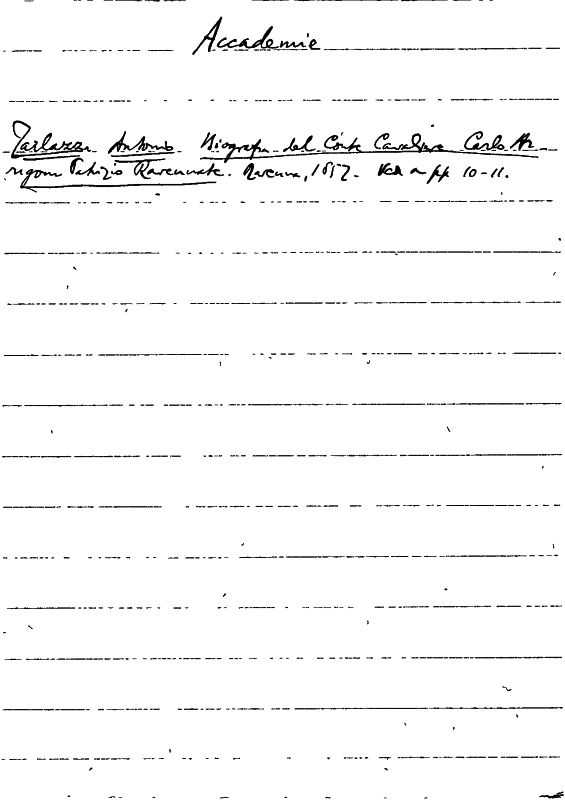 Accademie
Tarlazzi Antonio Biografia del Conte Cavaliere Carlo Ar-
rigoni Patrizio Ravennate. Ravenna, 1857. Vedi a pp 10-11.